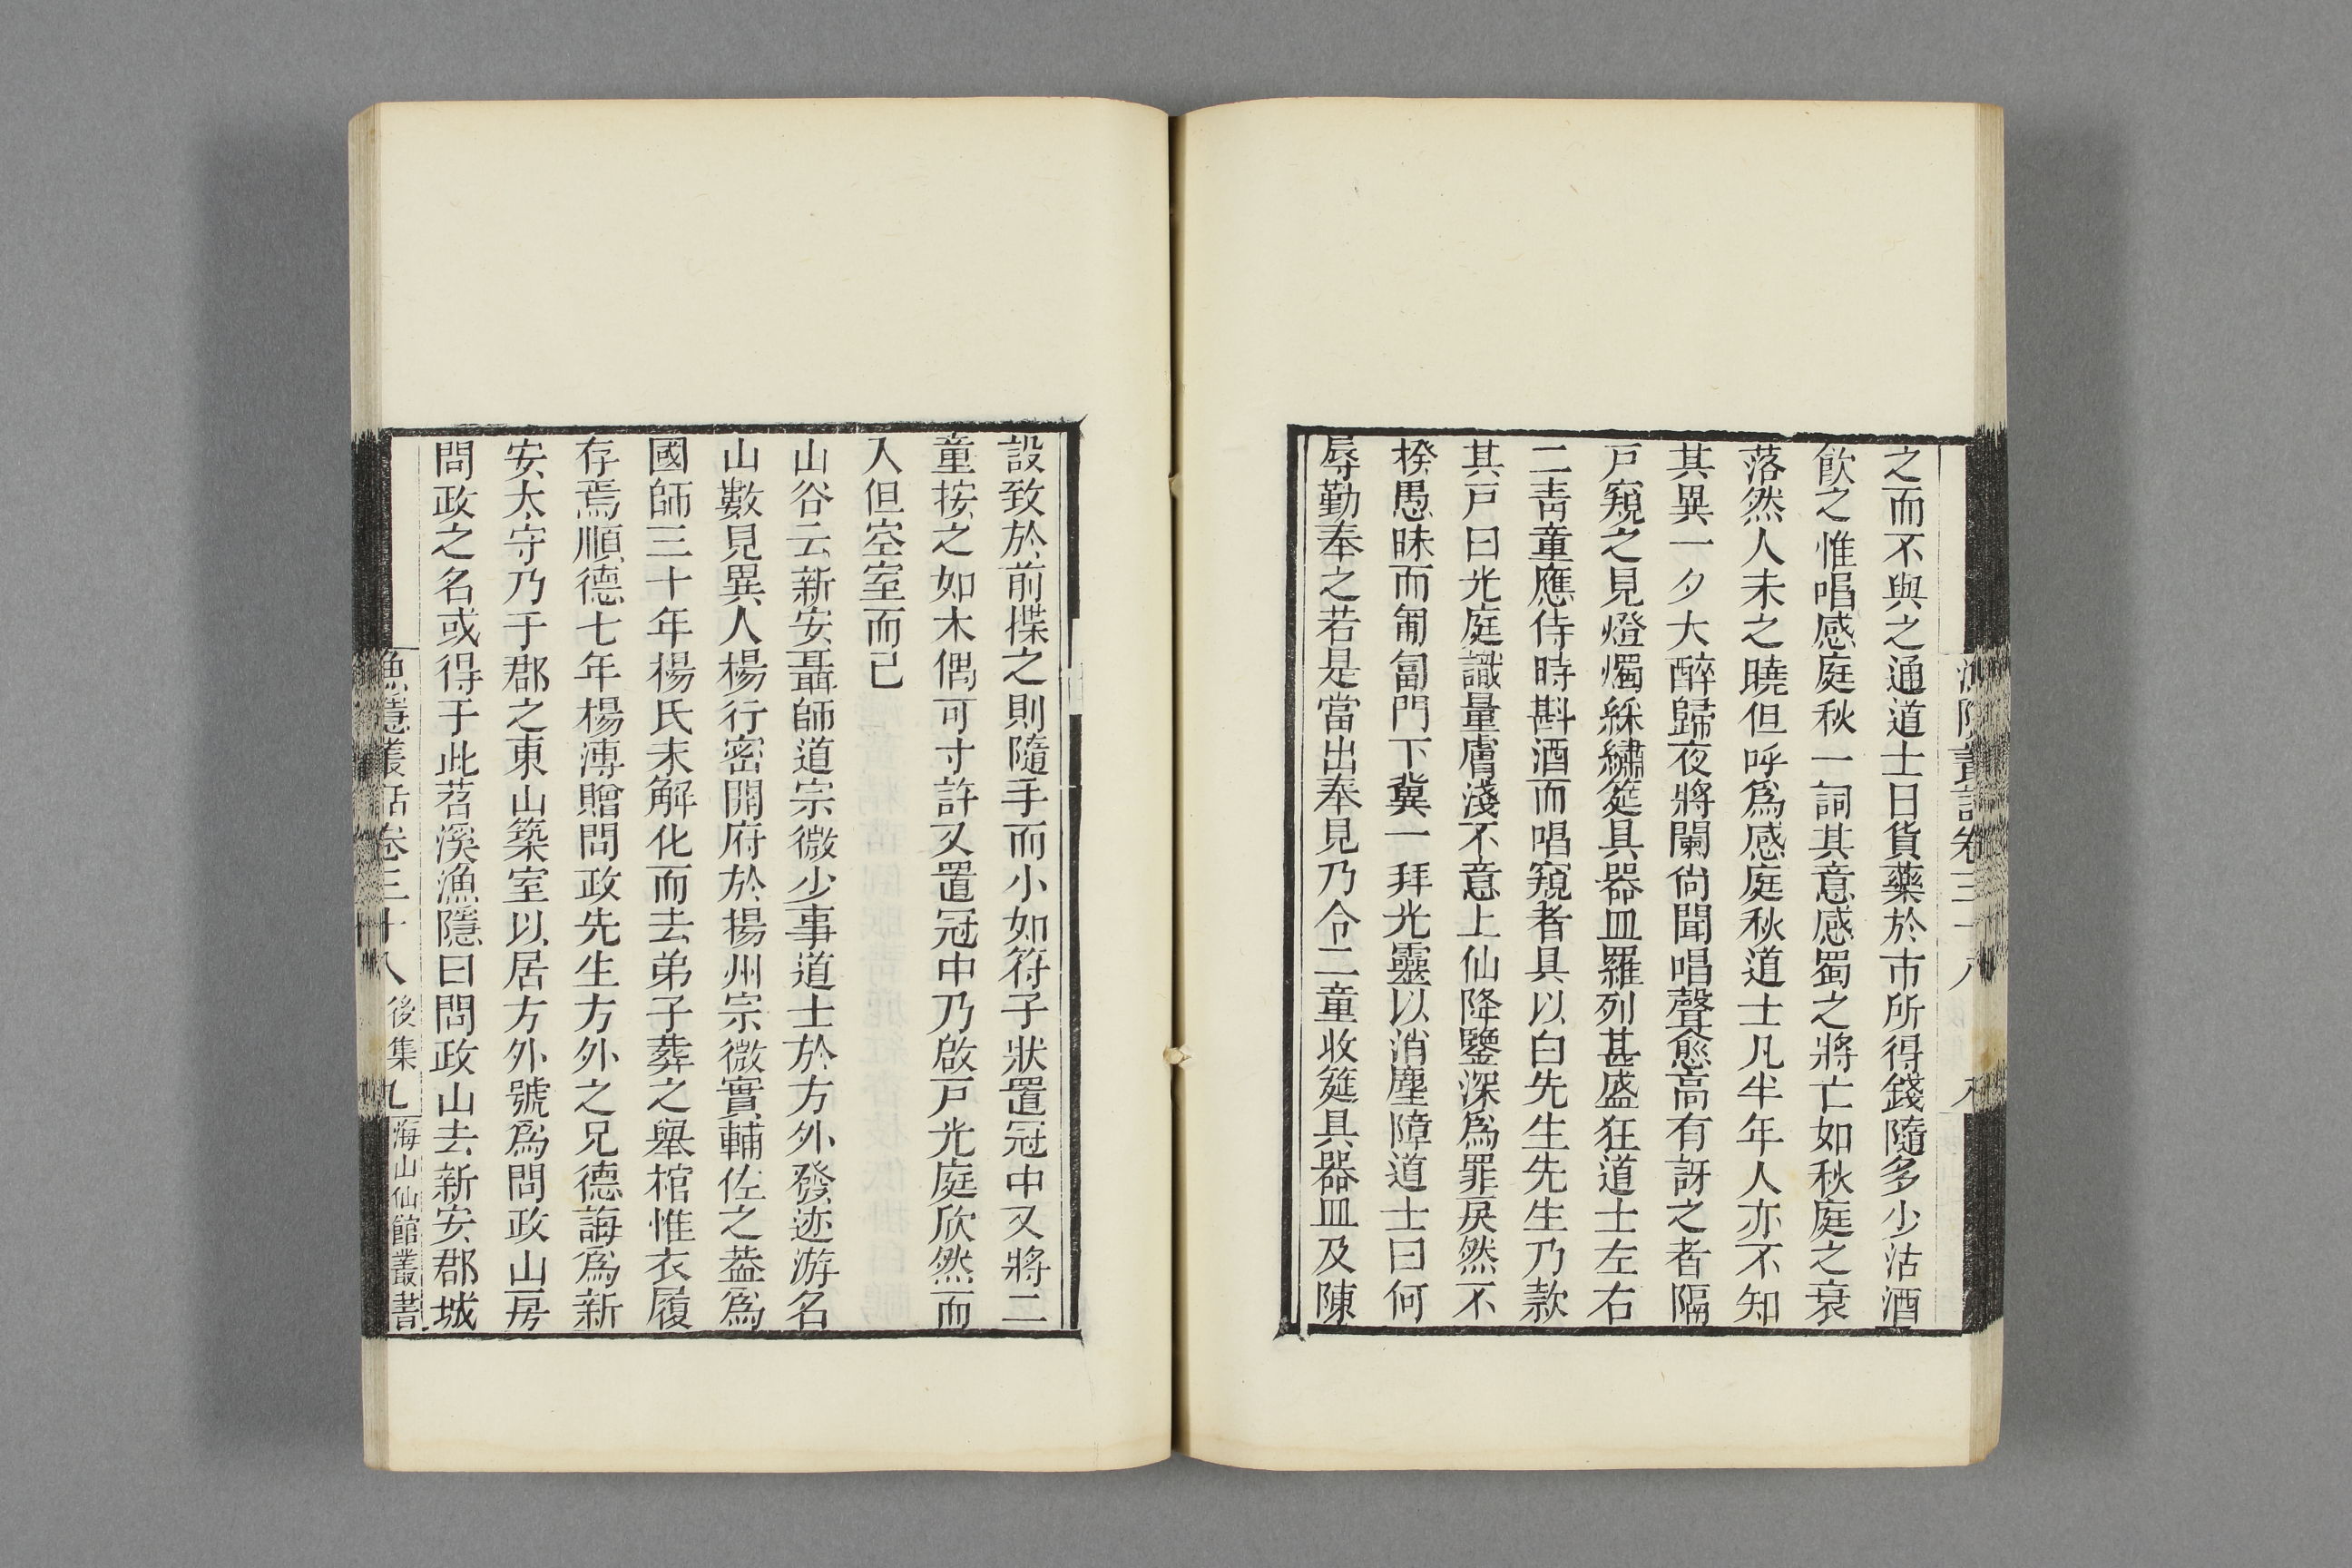 之而不與之通道士日貨藥於市所得錢隨多少沽酒
飮之惟唱感庭秋一詞其意感蜀之將亡如秋庭之衰
落然人未之曉但呼爲感庭秋道士凡半年人亦不知
其異一夕大醉歸夜將闌尙聞唱聲愈高有訝之者隔
戸窺之見燈燭綵繡筵具器皿羅列甚盛狂道士左右
二靑童應侍時斟酒而唱窺者具以白先生先生乃款
其戸曰光庭識量膚淺不意上仙降鑒深爲罪戾然不
揆愚昧而匍匐門下冀一拜光靈以消塵障道士曰何
辱勤奉之若是當出奉見乃令二童收筵具器皿及陳
設致於前揲之則隨手而小如符子狀置冠中又將二
童按之如木偶可寸許又置冠中乃啟戸光庭欣然而
入但空室而已
山谷云新安聶師道宗微少事道士於方外發迹游名
山數見異人楊行密開府於揚州宗微實輔佐之葢爲
國師三十年楊氏末解化而去弟子葬之舉棺惟衣履
存焉順德七年楊溥贈問政先生方外之兄德誨爲新
安太守乃于郡之東山築室以居方外號爲問政山房
問政之名或得于此苕溪漁隱曰問政山去新安郡城
漁隱叢話卷三十八 後集 九 海山仙館叢書